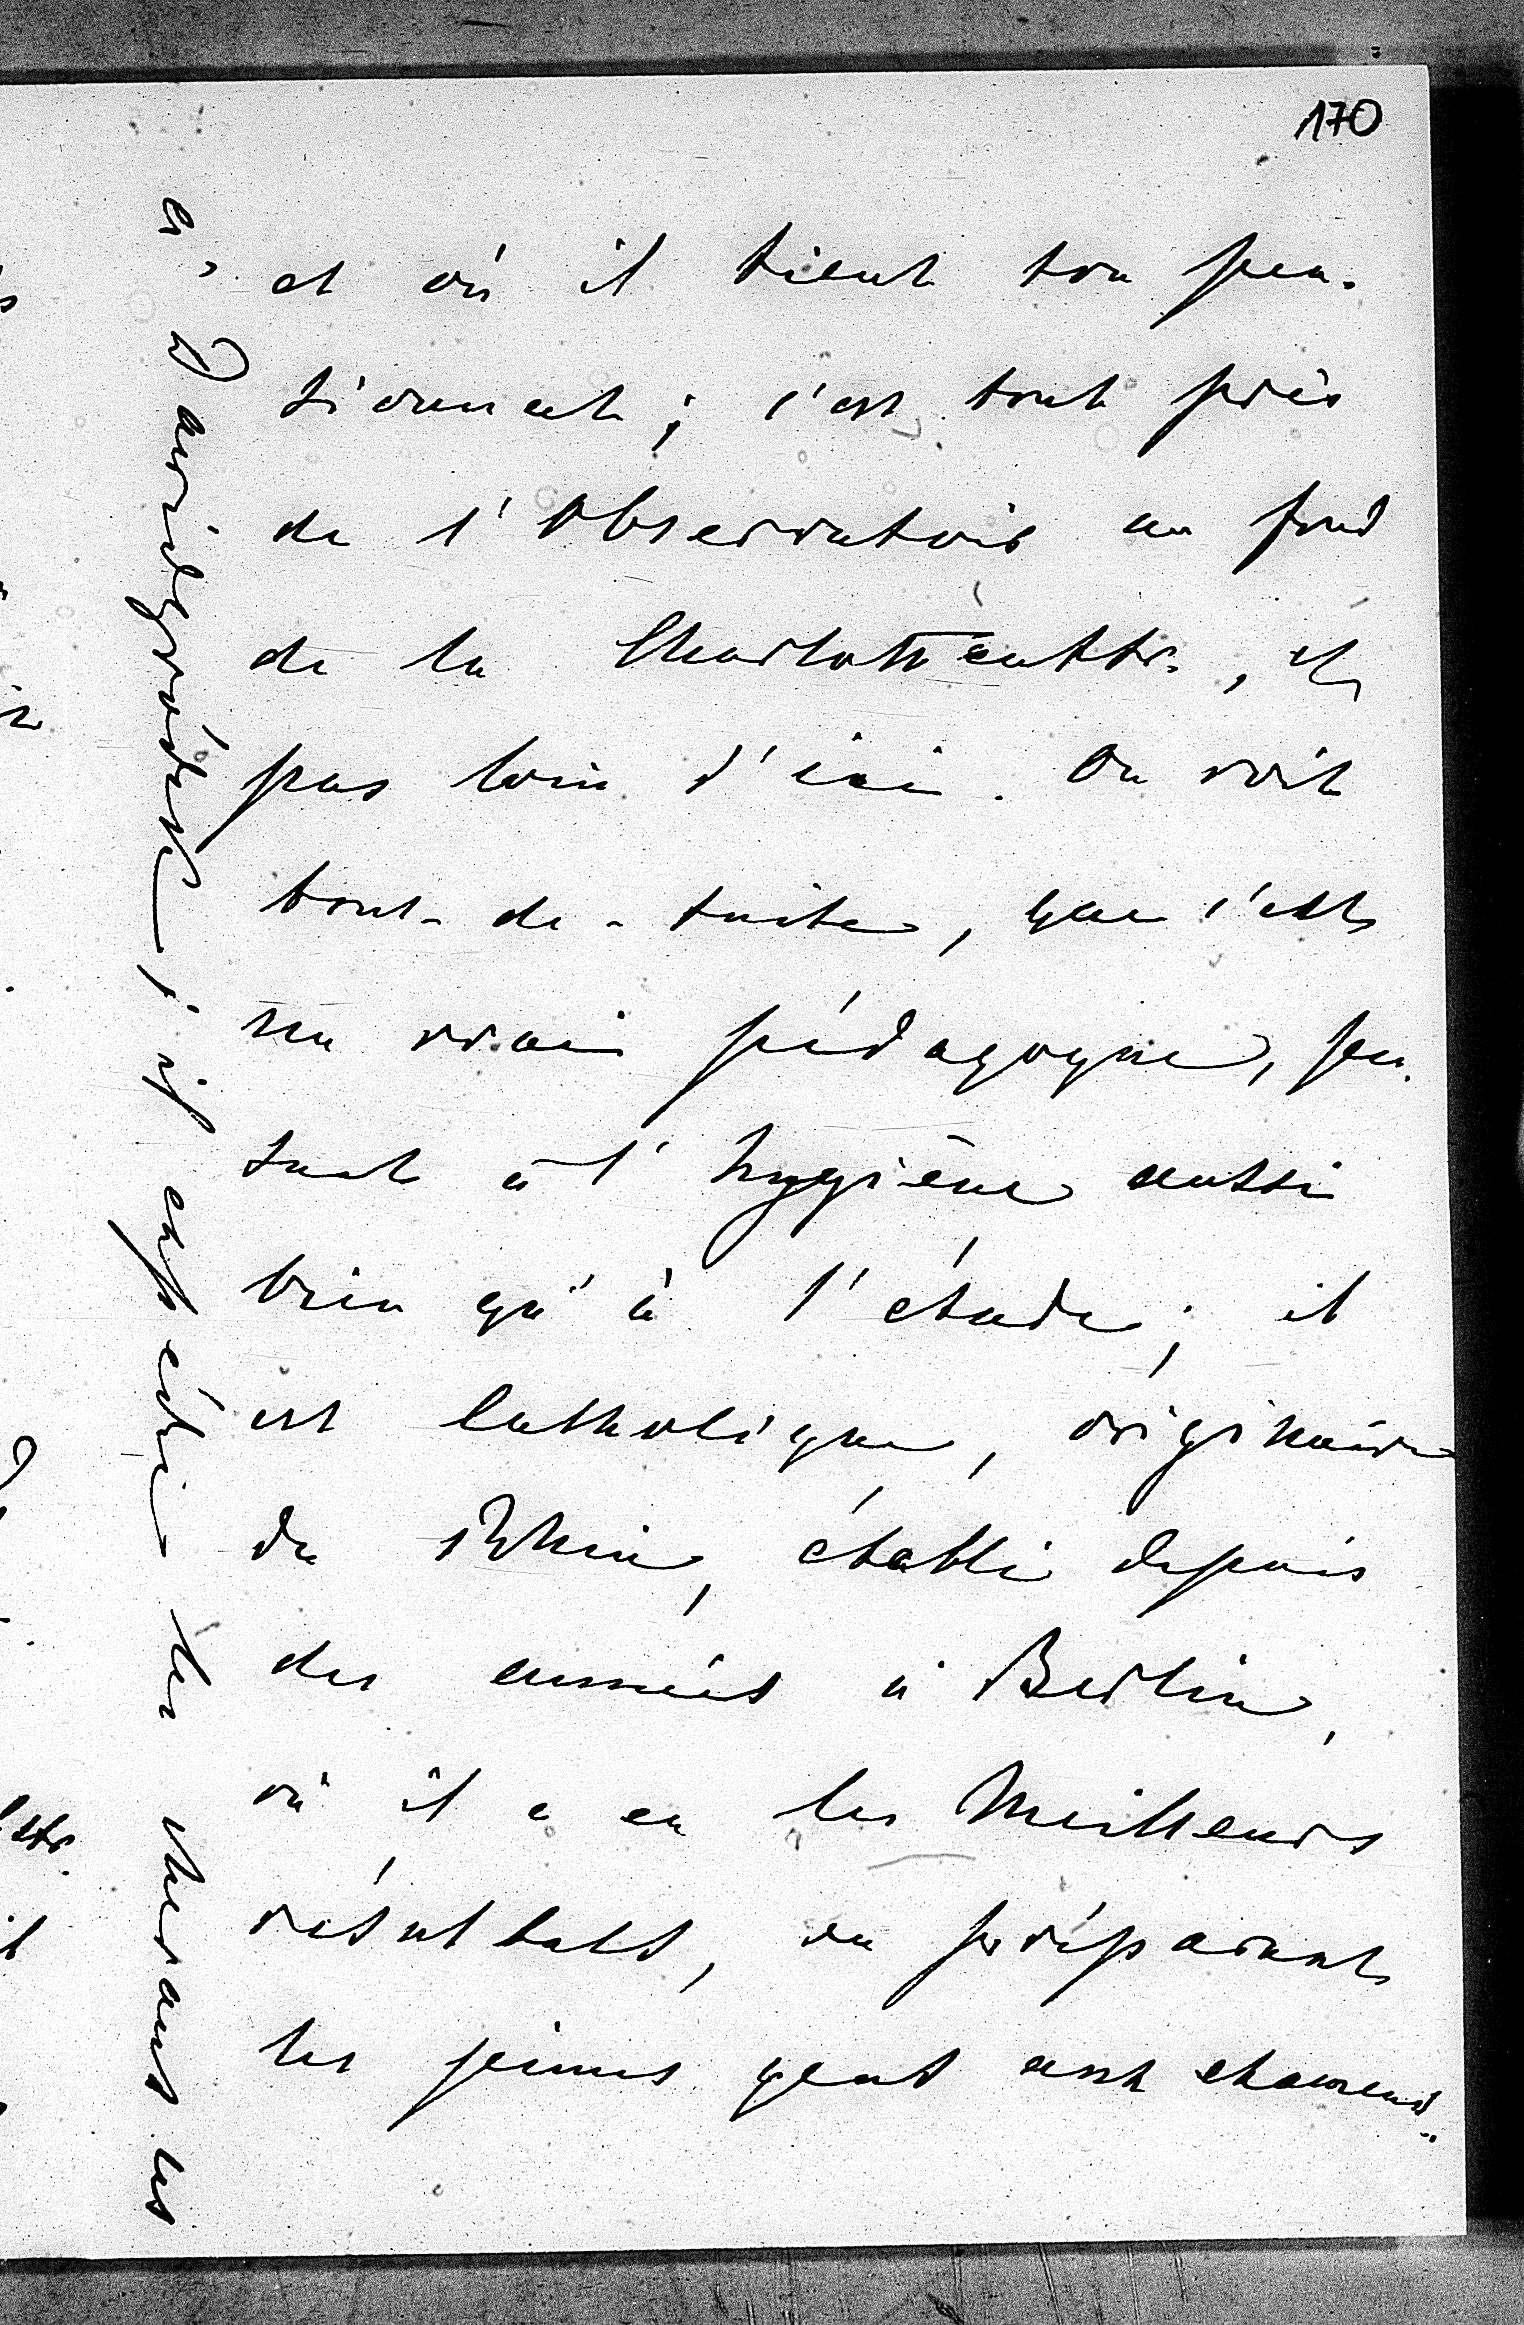 170
et où il tient son pen-
sionnat; c'est tout près
de l'Observatoire au fond
de la Charlottenstr., et
pas loin d'ici. On voit
tout-de-suite, que c'est
un vrai pédagogue, pen-
sant à l'hygiène aussi
bien qu'à l'étude; il
est Catholique, originaire
du Rhin, établi depuis
des années à Berlin,
où il a eu les Meilleurs
résultats, en préparant
les jeunes gens aux examens.
les